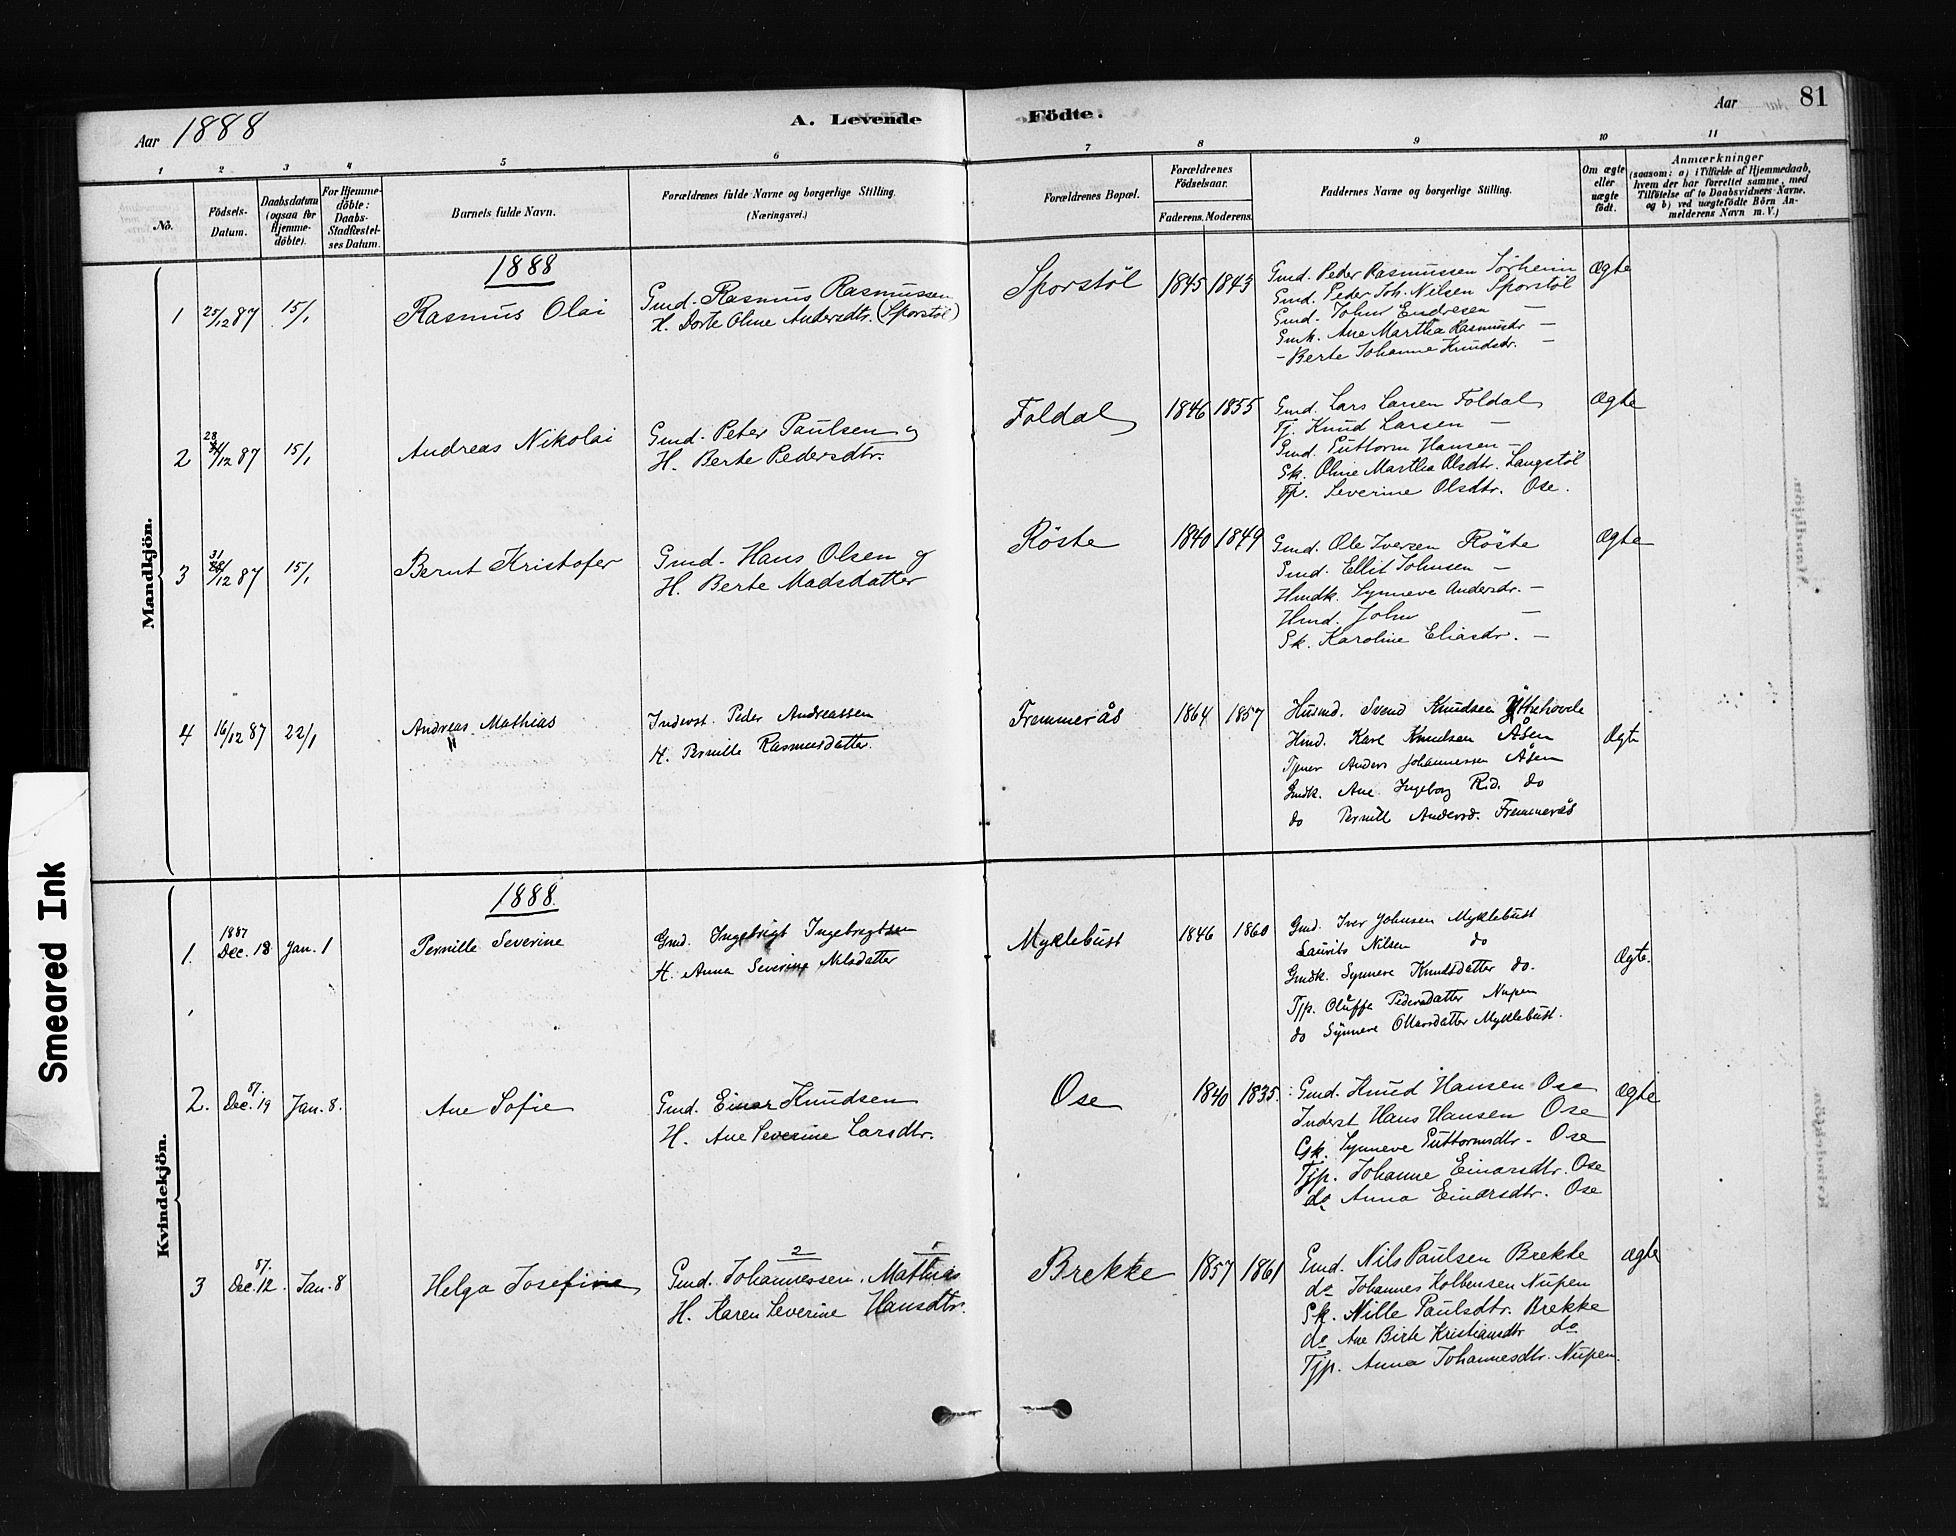 Aar 1888 A. Levende Födte. Aar 81
1 2 3 4 5 6 7 8 9 10 11
No. Födsels-Datum. Daabsdatum (ogsaa for Hjemme-döbte). For Hjemme-döbte: Daabs-Stadfæstel-ses Datum. Barnets fulde Navn. Forældrenes fulde Navne og borgerlige Stilling. (Næringsvei.) Forældrenes Bopæl. Forældrenes Födselsaar. Faderens. Moderens. Faddernes Navne og borgerlige Stilling. Om ægte eller uægte födt. Anmærkninger (saasom: a) i Tilfælde af Hjemmedaab, hvem der har forrettet samme, med Tilföielse af to Daabsvidners Navne. og b) ved uægtefödte Börn Anmelderens Navn m. V.)
Mandkjön.
1888
1 25/12 87 15/1 Rasmus Olai
Gmd. Rasmus Rasmussen
H. Dorte Oline Andersdtr. (Sporstöl)
Sporstöl 1845 1843
Gmd. Peder Rasmussen Sörheim Ægte
Gmd. Peder Joh. Nilsen Sporstöl
Gmd. Johns Endresen —
Gmk. Ane Martha Rasmusdr —
- Berte Johanne Knudsdr. —
2 28/12 87 15/1 Andreas Nikolai
Gmd. Peter Paulsen og
H. Berte Pedersdtr.
Foldal 1846 1855
Gmd. Lars Larsen Foldal Ægte
Tj. Knud Larsen —
Gmd. Guttorm Hansen —
Gk. Oline Martha Olsdtr. Langstöl
Tjp. Severine Olsdtr. Ose.
3 31/12 87 15/1 Bernt Kristofer
Gmd. Hans Olsen og
H. Berte Madsdatter
Röste 1840 1849
Gmd. Ole Iversen Röste Ægte
Gmd. Ellit Johnsen —
Hmdk. Synneve Andersdr. —
Hmd. John —
Gk. Karoline Eliasdr. —
4 16/12 87 22/1 Andreas Mathias
Inderst. Peder Andreassen
H. Pernille Rasmusdatter.
Fremmerås 1864 1857
Husmd. Svend Knudsen Yttrehovde
Hmd. Karl Knudsen Åsen Ægte
Tjener Anders Johannessen Åsen
Gmdk. Ane Ingeborg R.d. do
do Pernill Andersd. Fremmerås
Kvindekjön.
1888.
1. 1887 Dec. 18 Jan. 1 Pernille Severine
Gmd. Ingebrigt Ingebrigtsen
H. Anna Severine Nilsdatter
Myklebust 1846 1860
Gmd. Iver Johnsen Myklebust
Laurits Nilsen do
Gmdk. Synneve Knudsdatter do. Ægte.
Tjp. Oluffe Pedersdatter Nupen
do Synneve Ottarsdatter Myklebust.
2. 87. Dec. 19 Jan. 8. Ane Sofie
Gmd. Einar Knudsen
H. Ane Severine Larsdtr.
Ose 1840 1835.
Gmd. Knud Hansen Ose Ægte
Inderst Hans Hansen Ose
Gk. Synneve Guttormsdtr. Ose
Tjp. Johanne Einarsdtr. Ose
do Anna Einarsdtr. Ose
3 87. Dec. 12. Jan. 8 Helga Josefine
Gmd. Johannessen, Mathias
H. Karen Severine Hansdtr.
Brekke 1857 1861
Gmd. Nils Paulsen Brekke Ægte
do Johannes Kolbensen Nupen
Gk. Nille Paulsdtr. Brekke
do Ane Birte Kristiansdtr do
Tjp. Anna Johannesdtr. Nupen.
Smeared Ink